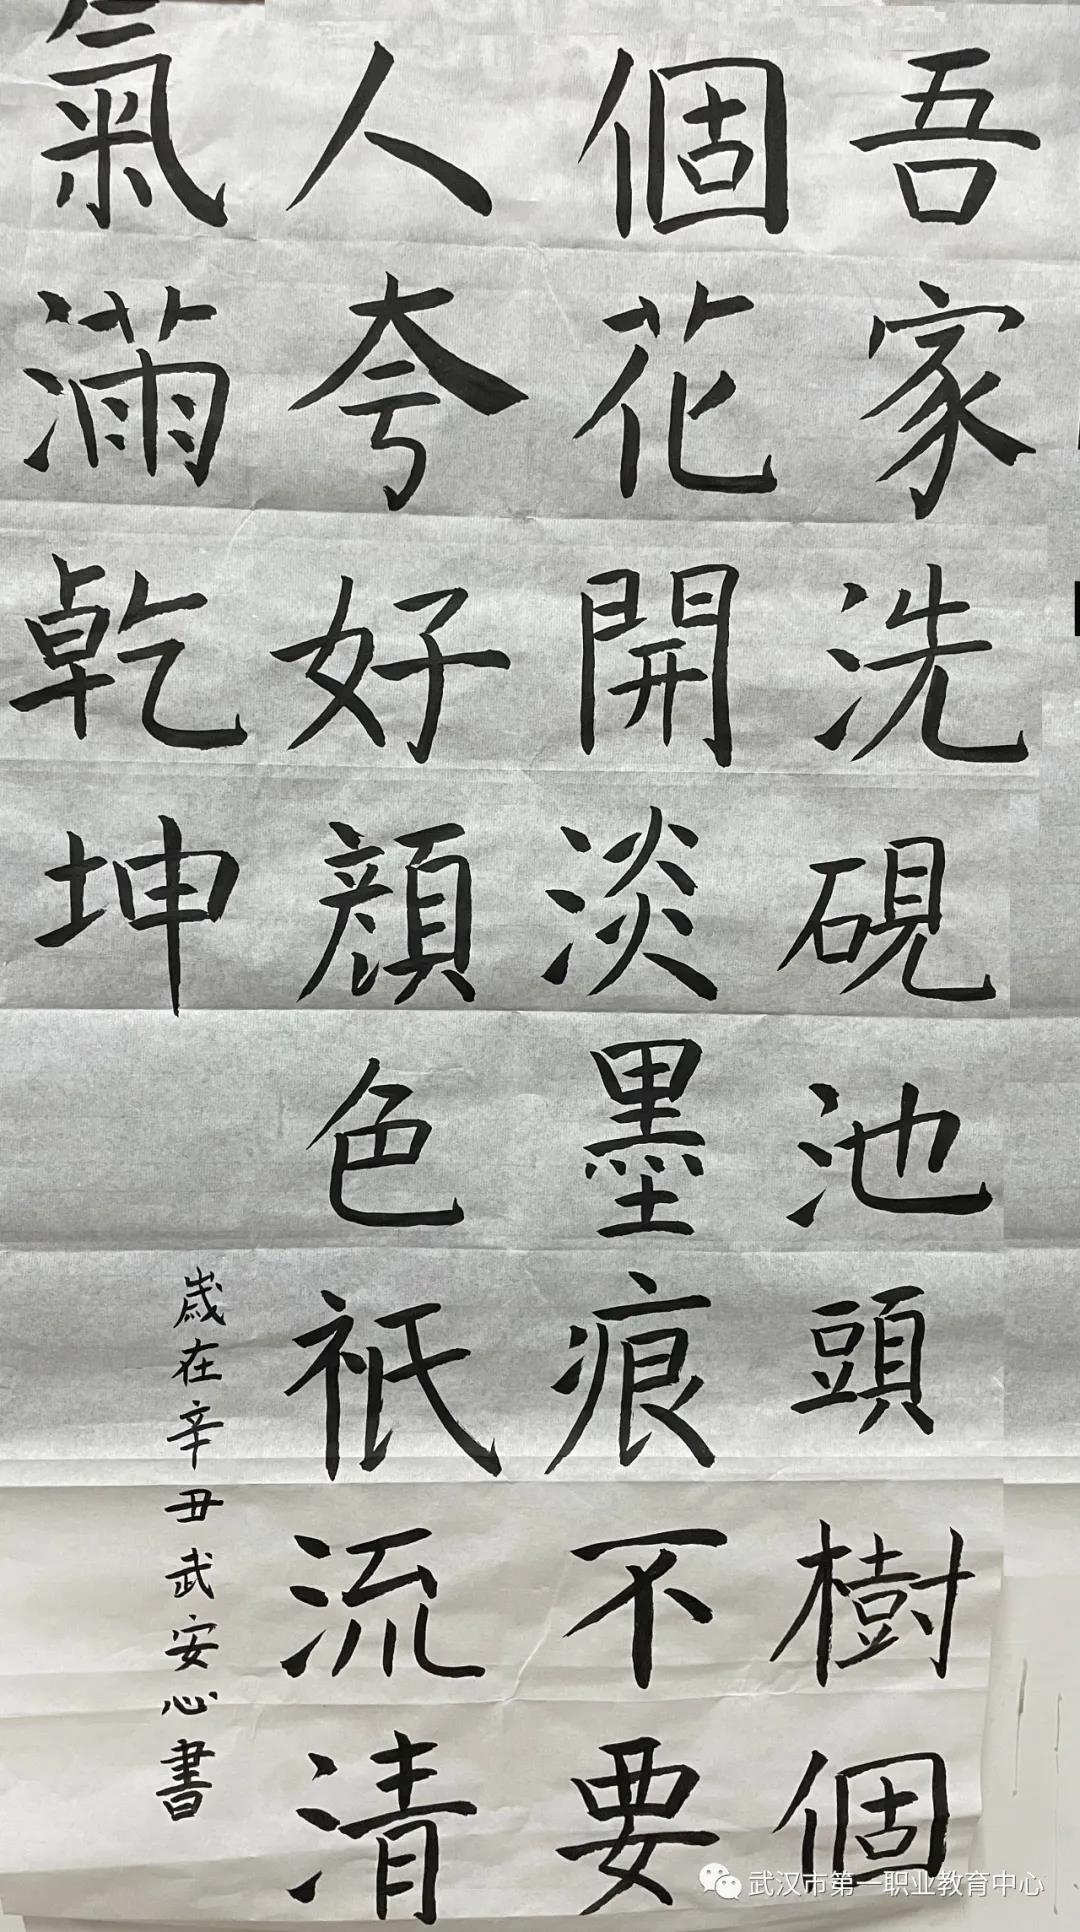 吾家洗硯池頭樹個
個花開淡墨痕不要
人夸好顔色祇流清
氣滿乾坤
歲在辛丑武安心書
武汉市第一职业教育中心